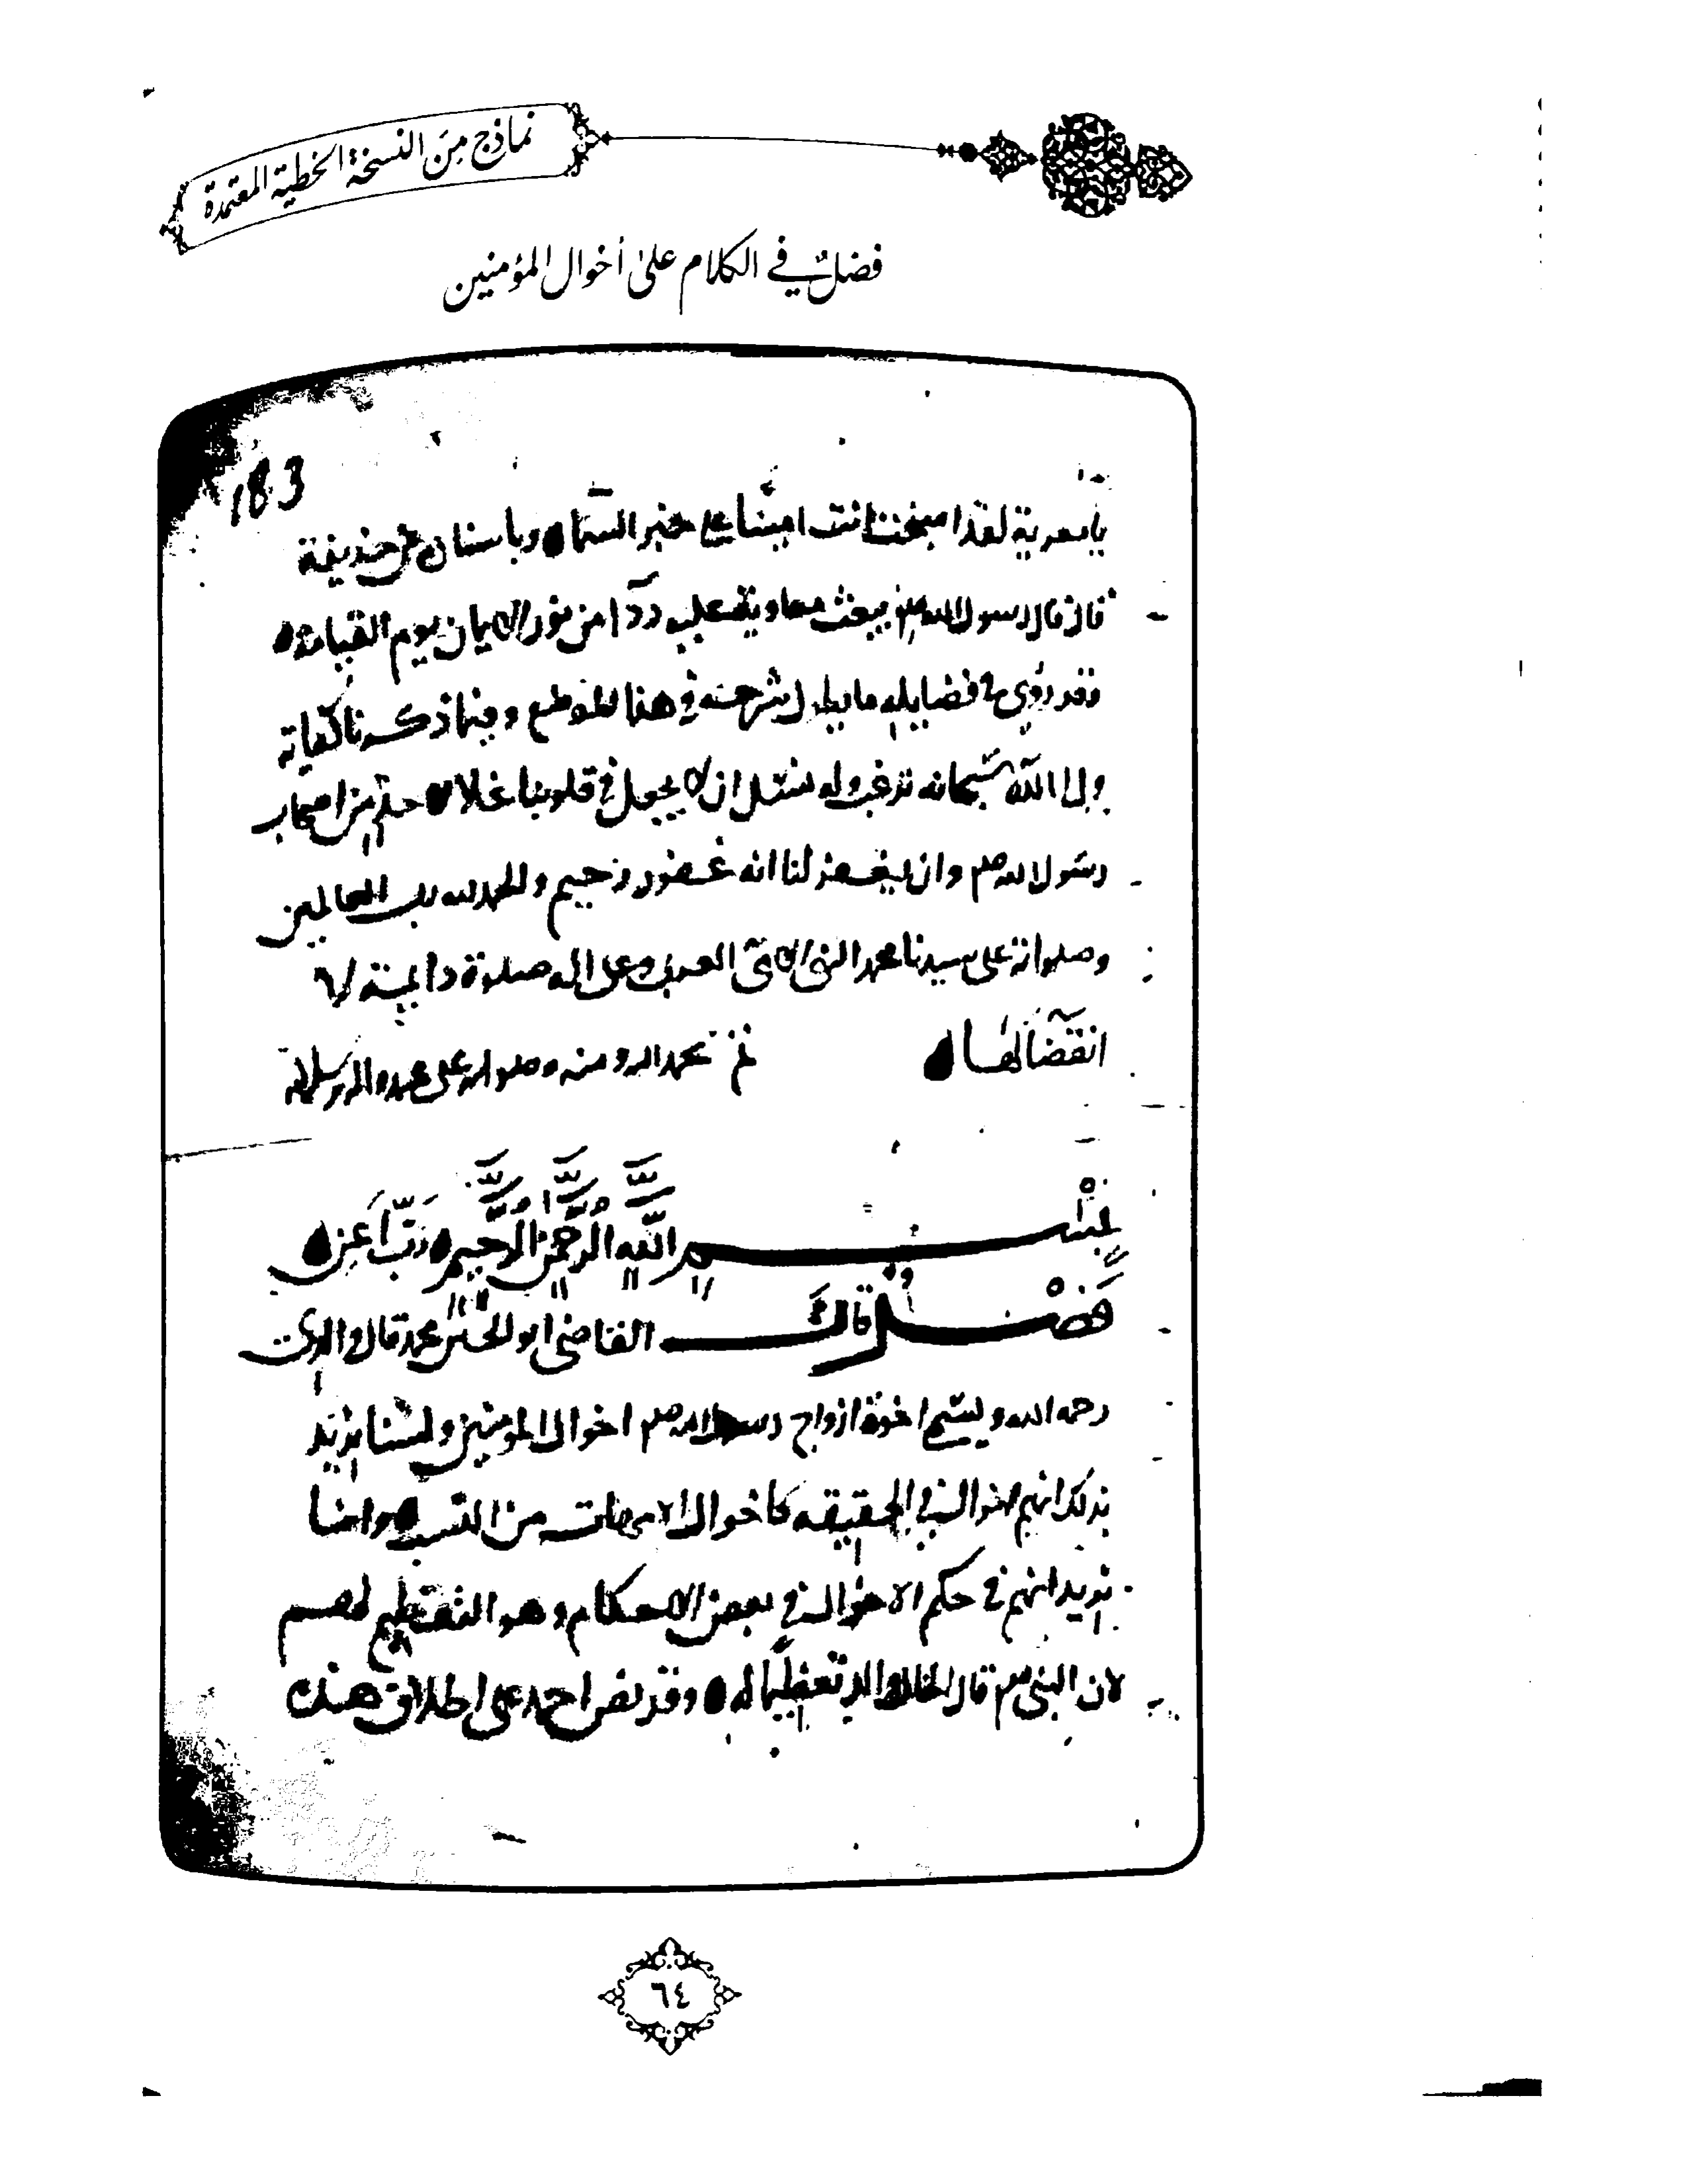 نماذج من النسخة الخطية المعتمدة
فصل في الكلام على أخوال المؤمنين
183
لقد اصبحت امينا على خبر السماء وباسناده عن حذيفة
قال قال رسول الله صلعم يبعث معاوية عليه ردآ من نور الايمان يوم القيامة
وقد روي في فضايله ما يطول شرحه في هذا الموضع وفيما ذكرنا كفاية
والى الله سبحانه نرغب وله نسئل ان لا يجعل في قلوبنا غلا لاحد من اصحاب
رسول الله صلعم وان يغفر لنا انه غفور رحيم والحمد لله رب العالمين
وصلواته على سيدنا محمد النبي الامي العربي وعلى اله صلوة دايمة لا
انقضآ لها
تم بحمد الله ومنه وصلواته على محمد واله وسلامه
بسم الله الرحمن الرحيم رب اعن
فصل قال القاضي ابو الحسين محمد قال والدي
رحمه الله ويسمى اخوة ازواج رسول الله صلعم اخوال المومنين ولسنا نريد
بذلك انهم اخوال في الحقيقه كاخوال الامهات من النسب وانما
نريد انهم في حكم الاخوال في بعض الاحكام وهو التعظيم لهم
لان النبي صلعم قال الخال والد تعظيما له وقد نص احمد على اطلاق هذه
٦٤